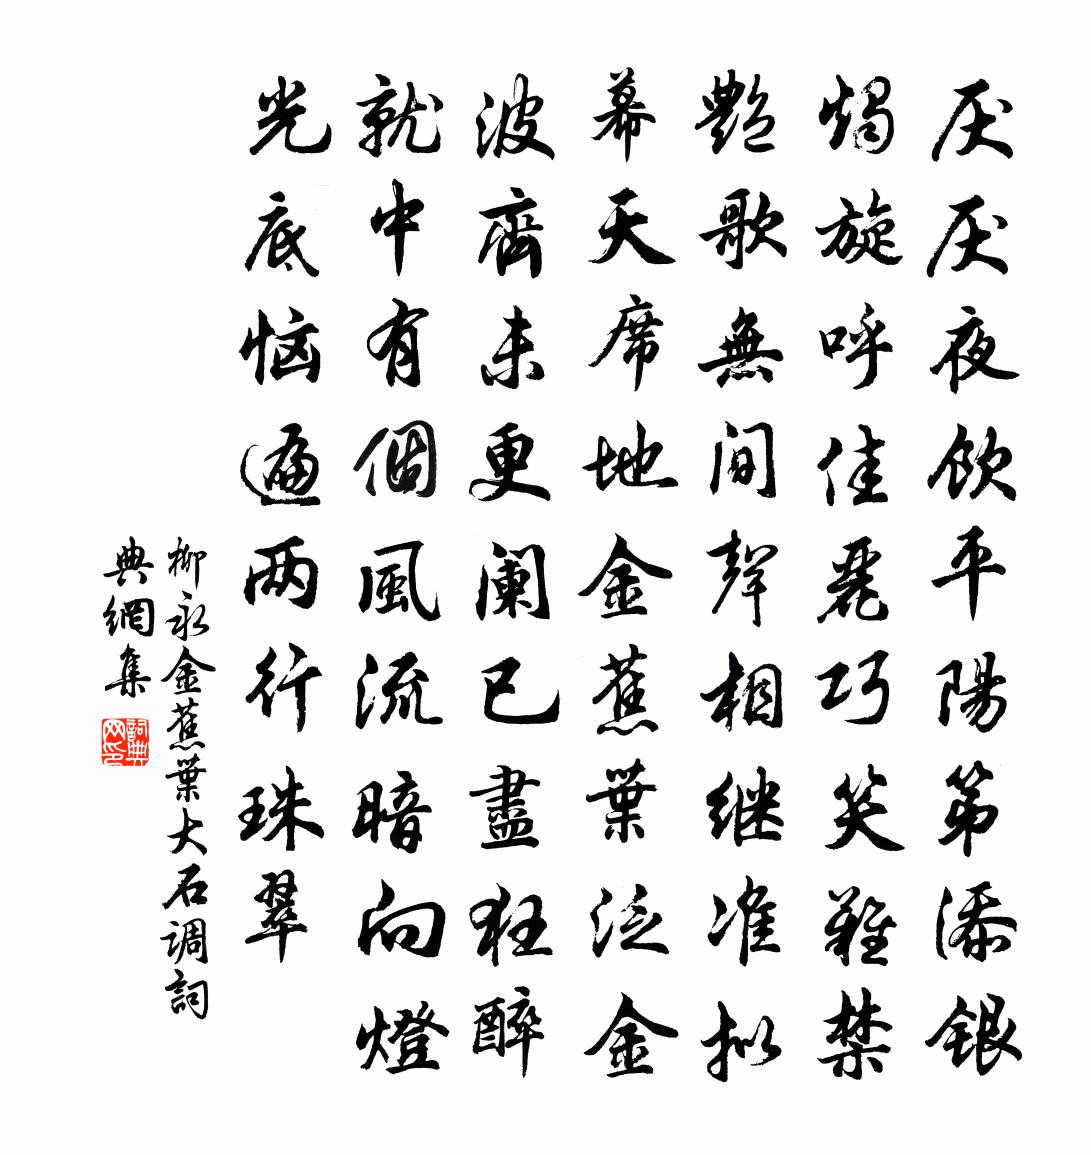 厌厌夜飲平陽第添銀
燭旋呼佳麗巧笑難禁
艷歌無间聲相继准拟
幕天席地金蕉葉泛金
波齊未更阑已盡狂醉
就中有個風流暗向燈
光底恼遍两行珠翠
柳永金蕉葉大石调詞
典網集
詞典网印